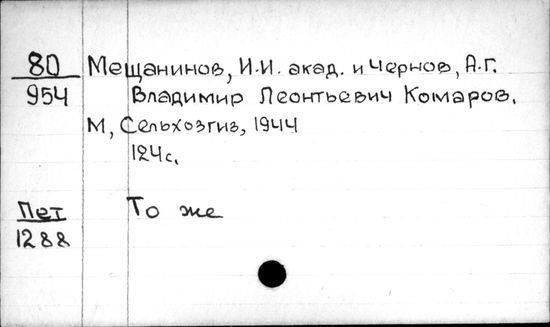 80 Мещанинов, И.И. акад. и Чернов, А.Г.
954 Владимир Леонтьевич Комаров.
М, Сельхозгиз, 1944
124с.
Пет То же
1288